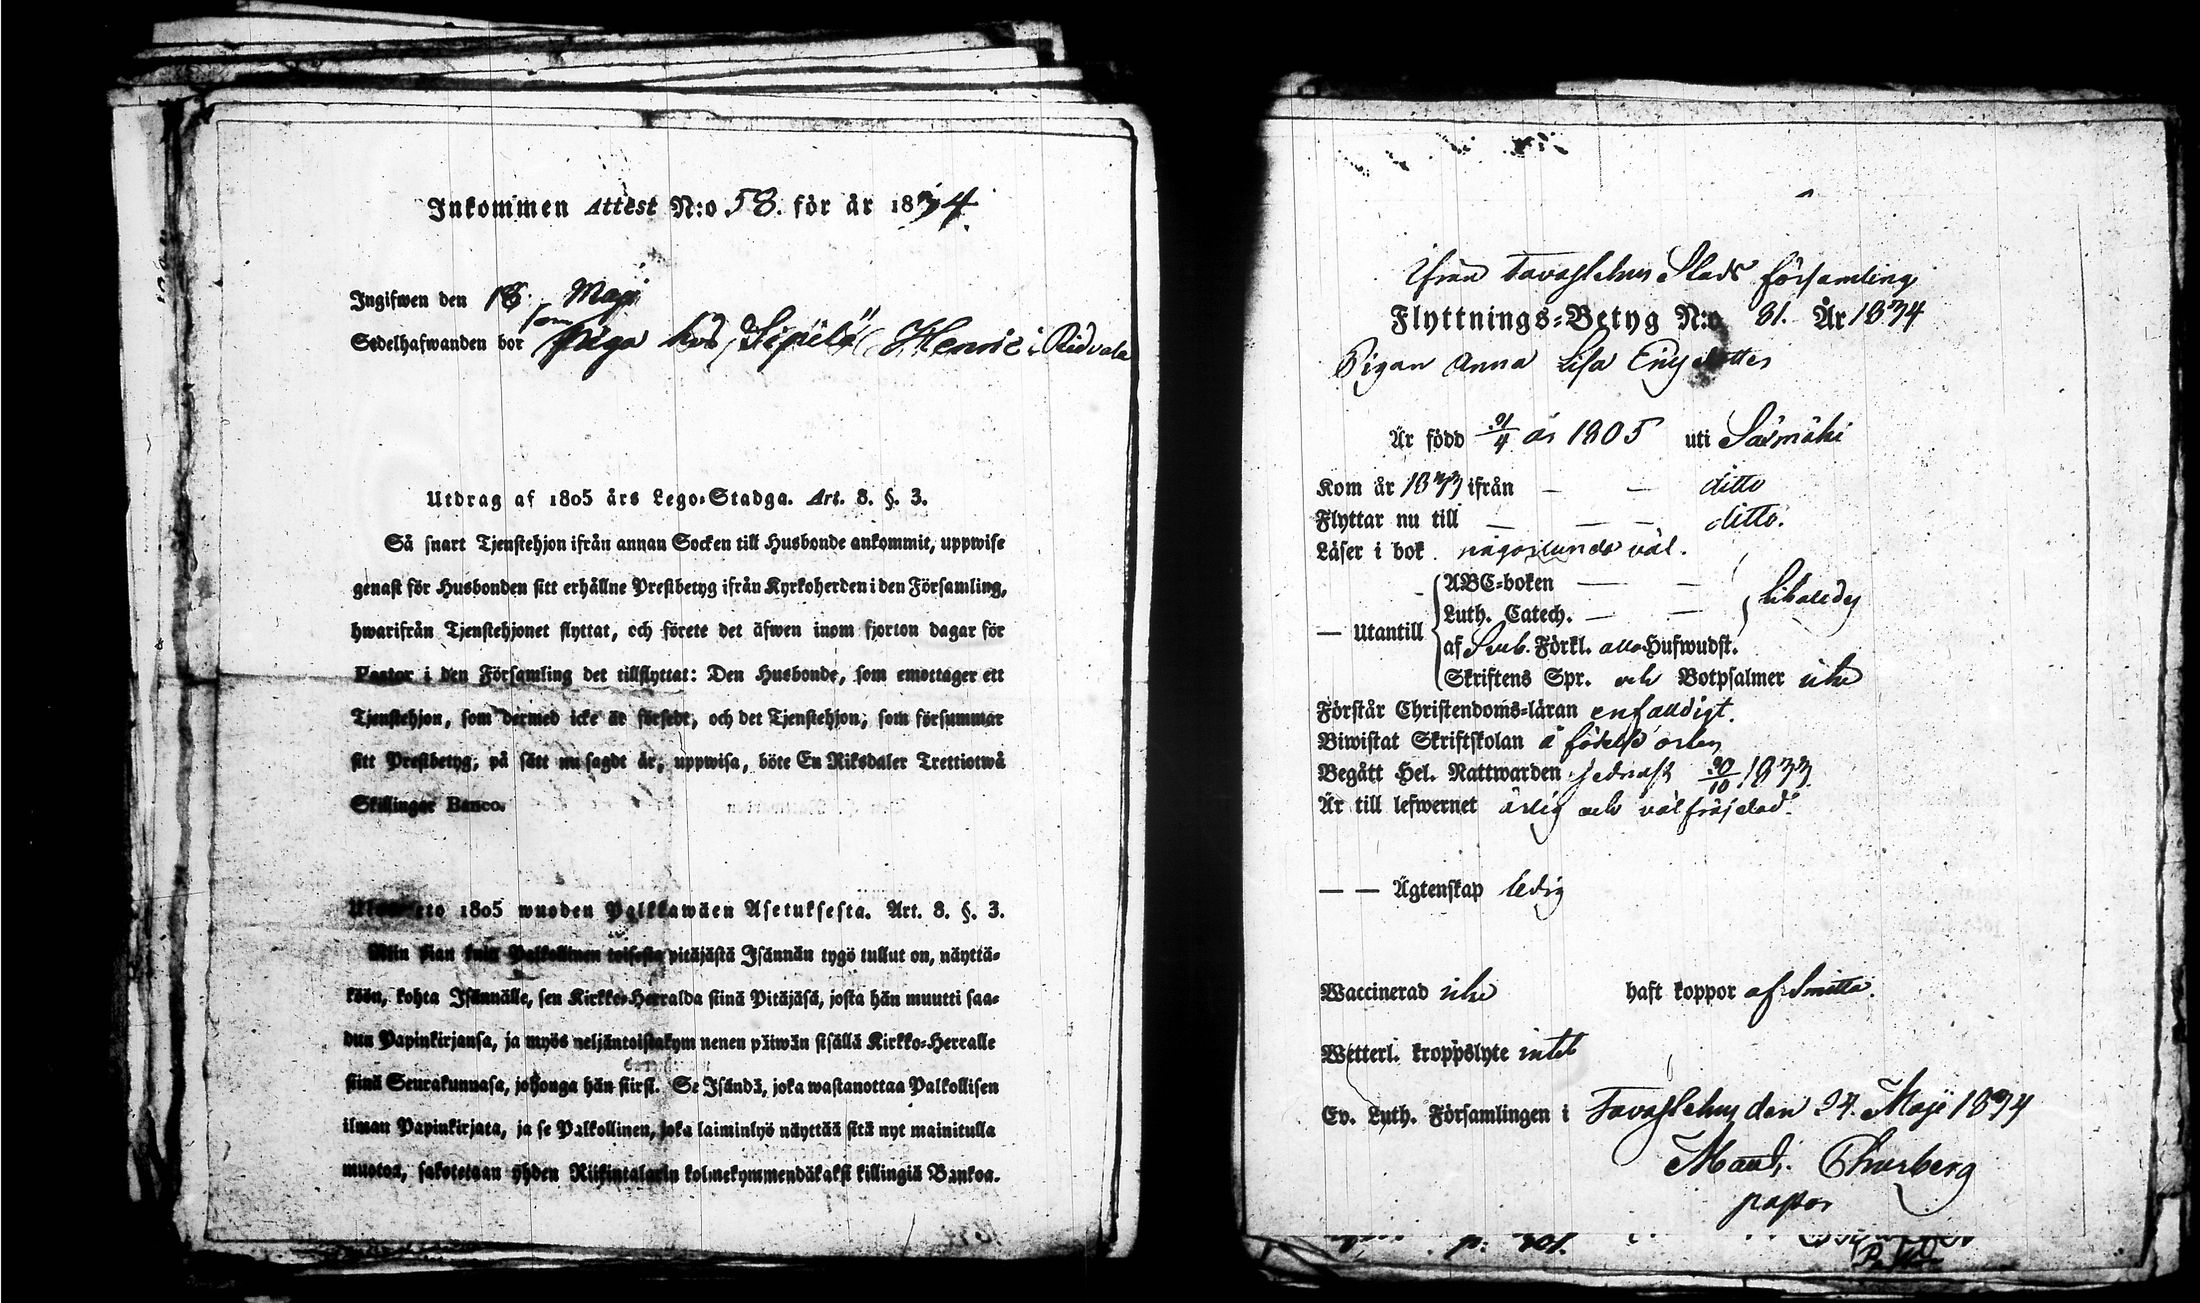 Inkommen Attest N:o 58. för år 1834.
Ingifwen den 18. Maji
som
Sedelhafwanden bor piga hos Sipilä Henric i Ridvala
Utdrag af 1805 års Lego-Stadga. Art. 8. §. 3.
Så snart Tjenstehjon ifrån annan Socken till Husbonde ankommit, uppwise
genast för Husbonden sitt erhållne Prestbetyg ifrån Kyrkoherden i den Församling,
hwarifrån Tjenstehjonet flyttat, och förete det äfwen inom fjorton dagar för
Pastor i den Församling det tillflyttat: Den Husbonde, som emottager ett
Tjenstehjon, som dermed icke är försedt, och det Tjenstehjon, som försummar
sitt Prestbetyg, på sätt nu sagdt är, uppwisa, böte En Riksdaler Trettiotwå
Skillingar Banco.
1805 wuoden Palkkawäen Asetuksesta. Art. 8. §. 3.
Niin pian kuin Palkollinen toisesta pitäjästä Isännän tygö tullut on, näyttä-
köön, kohta Isännälle, sen Kirkko-Herralda siinä Pitäjäsä, josta hän muutti saa-
dun Papinkirjansa, ja myös neljäntoistakym nenen päiwän sisällä Kirkko-Herralle
siinä Seurakunnasa, johonga hän siirsi. Se Isändä, joka wastanottaa Palkollisen
ilman Papinkirjata, ja se Palkollinen, joka laiminlyö näyttää sitä nyt mainitulla
muotoa, sakotetaan yhden Riikintalarin kolmekymmendäkaksi killingiä Bankoa.
Ifrån Tavastehus Stads församling
Flyttnings-Betyg N:o 81. År 1834
Pigan Anna Lisa Ericsdotter
Är född 21/4 år 1805 uti Säxmäki
Kom år 1833 ifrån — — ditto
Flyttar nu till — — — ditto.
Läser i bok någorlunda väl.
— Utantill
ABC-boken — —
Luth. Catech. — —
af Sveb. Förkl. alla Hufwudst.
Skriftens Spr. och Botpsalmer icke
Förstår Christendoms-läran enfaldigt.
Biwistat Skriftskolan å födelse orten
Begått Hel. Nattwarden sednast 20/10 1833
Är till lefwernet ärlig och välfräjdad.
— — Ägtenskap ledig
Waccinerad icke haft koppor af Smitta.
Wetterl. kroppslyte intet
Ev. Luth. Församlingen i Tavastehus den 24. Maji 1834
Thurberg
pastor